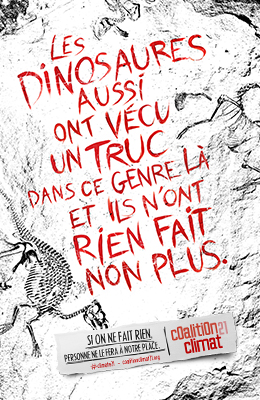 LES
DINOSAURES
AUSSI
ONT VÉCU
UN TRUC
DANS CE GENRE LÀ
ET ILS N'ONT
RIEN FAIT
NON PLUS.
SI ON NE FAIT RIEN,
PERSONNE NE LE FERA À NOTRE PLACE.
#climate21 - coalitionclimat21.org
COalitiON 21
climat